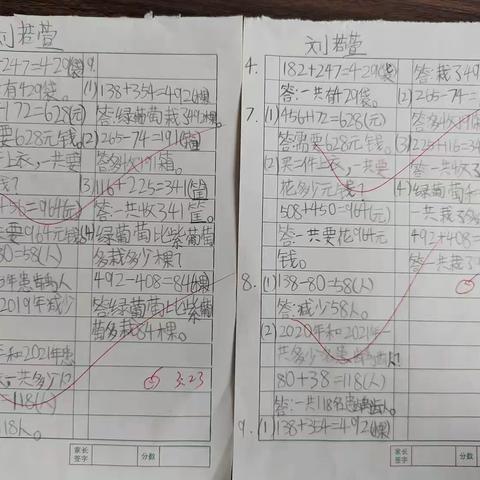 刘若萱
247=429(袋) 9.
有429袋。 (1) 138+354=492(棵)
172=628(元) 答:绿葡萄栽
要628元钱。 (2) 265-74=191(箱)
上衣,一共要 答:多收191箱。
钱? (3) 116+225=341(筐)
=964(元) 答:一共收341筐。
要964元钱。 (4) 绿葡萄比紫葡萄
80=58(人) 多栽多少棵?
492-408=84(棵)
2019年减少 答:绿葡萄比紫葡
萄多栽84棵。
和2021年患
一共多少人?
118(人) 3.23
118人。
家长签字 分数
刘若萱
4. 182+247=429(袋) 答:栽349
答:一共有429袋。 (2) 265-74=
7. (1) 456+172=628(元) 答:多收191箱
答:需要628元钱。 (3) 225+116=34
(2) 买一件上衣,一共要 答:一共收3
花多少元钱? (4) 绿葡萄
508+450=964(元) 一共栽
答:一共要花964 492+408=
钱。 答:一共栽
8. (1) 138-80=58(人)
答:减少58人。
(2) 2020年和2021年一
共多少患龋齿人?
80+38=118(人)
答:一共118名患龋齿人。
9. (1) 138+354=492(棵)
家长签字 分数